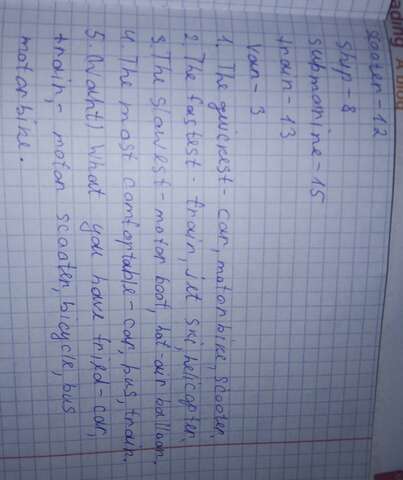 scooter-12
ship-8
submarine-15
train-13
van-3
1. The quickest-car, motorbike, scooter.
2. The fastest-train, jet ski, helicopter.
3. The slowest-motor boot, hot-air balloon.
4. The most comfortable-car, bus, train.
5. What you have tried-car,
train,- motor scooter, bicycle, bus
motorbike.